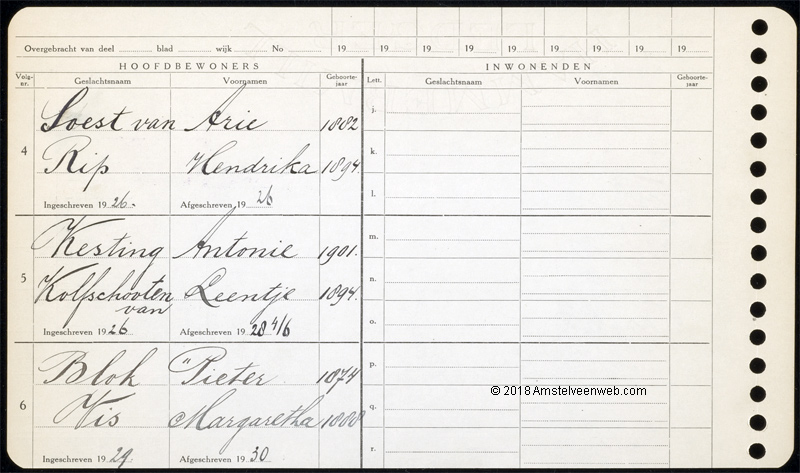 Overgebracht van deel blad wijk No 19 19 19 19 19 19 19 19 19
HOOFDBEWONERS INWONENDEN
Volg-nr. Geslachtsnaam Voornamen Geboorte-jaar Lett. Geslachtsnaam Voornamen Geboorte-jaar
j.
Soest van Arie 1882
4 k.
Rip Hendrika 1894
l.
Ingeschreven 1926.- Afgeschreven 1926
m.
Kesting Antonie 1901.
5 n.
Kolfschooten Leentje 1894.
van
o.
Ingeschreven 1926 Afgeschreven 1928 4/6
p.
Blok Pieter 1874
© 2018 Amstelveenweb.com
6 q.
Vis Margaretha 1888
r.
Ingeschreven 1929 Afgeschreven 1930